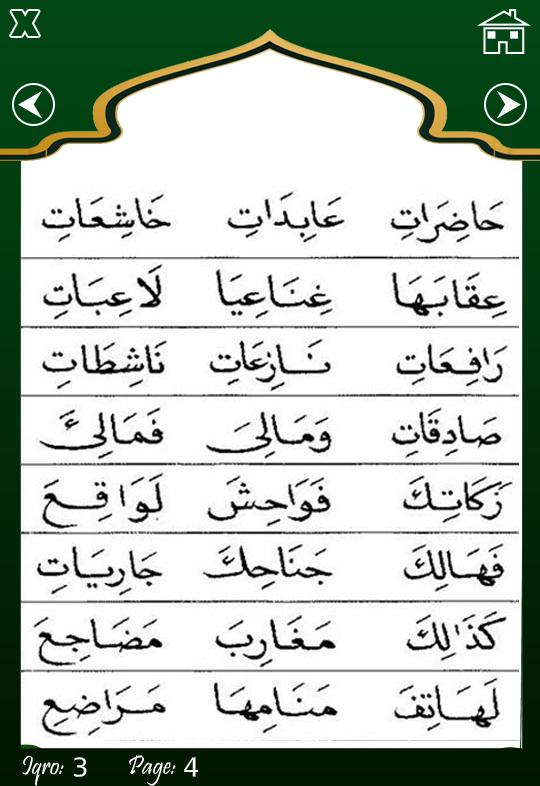 X
حَاضِرَاتِ عَابِدَاتِ خَاشِعَاتِ
عِقَابَهَا غِنَاعِيَا لَاعِبَاتِ
رَافِعَاتِ نَازِعَاتِ نَاشِطَاتِ
صَادِقَاتِ وَمَالِىَ فَمَالِىَٔ
زَكَاتِكَ فَوَاحِشَ لَوَاقِعَ
فَهَالِكَ جَنَاحِكَ جَارِيَاتِ
كَذَالِكَ مَغَارِبَ مَضَاجِعَ
لَهَاتِفَ مَنَامِهَا مَرَاضِعِ
Iqro: 3 Page: 4